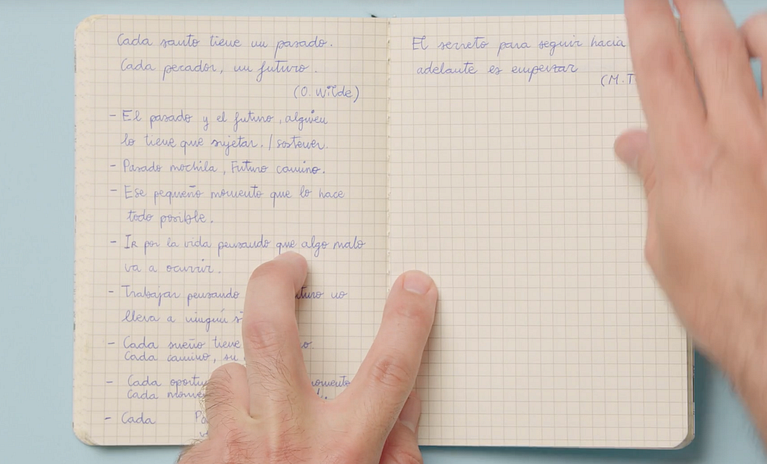 Cada santo tiene un pasado.
Cada pecador, un futuro.
(O. Wilde)
- El pasado y el futuro, alguien
lo tiene que sujetar. / sostener.
- Pasado mochila, Futuro camino.
- Ese pequeño momento que lo hace
todo posible.
- Ir por la vida pensando que algo malo
va a ocurrir.
- Trabajar pensando
lleva a ningún
- Cada sueño tiene
Cada camino, su
- Cada
Cada
- Cada
El secreto para seguir hacia
adelante es empezar
(M. T